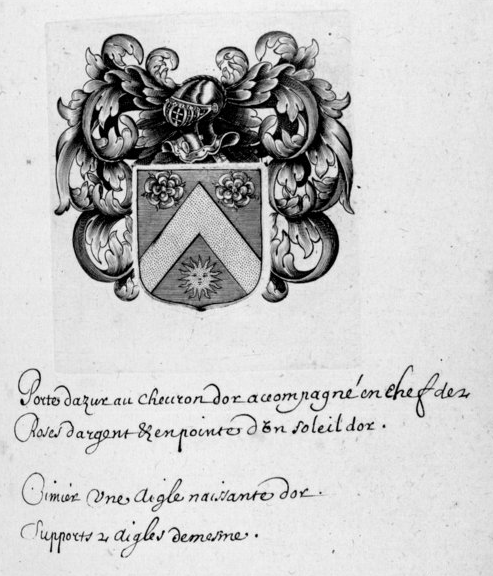 Porte dazur au cheuron dor acompagné en chef de 2
Roses dargent & en pointe d'Vn soleil dor.
Cimier Vne Aigle naissante dor.
Supports 2 aigles demesme.